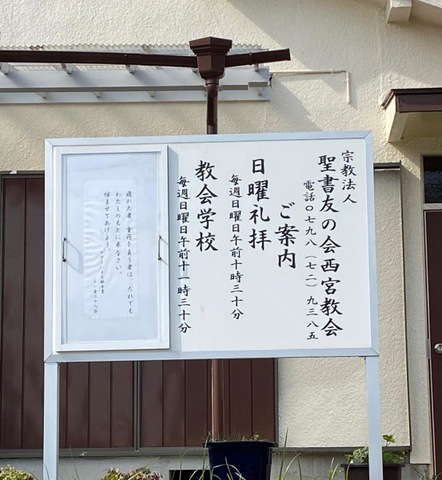 宗教法人
聖書友の会西宮教会
電話〇七九八(七二)九三八五
ご案内
日曜礼拝
毎週日曜日午前十時三十分
教会学校
毎週日曜日午前十一時三十分
疲れた者、重荷を負う者は、だれでも
わたしのもとに来なさい。
休ませてあげよう。